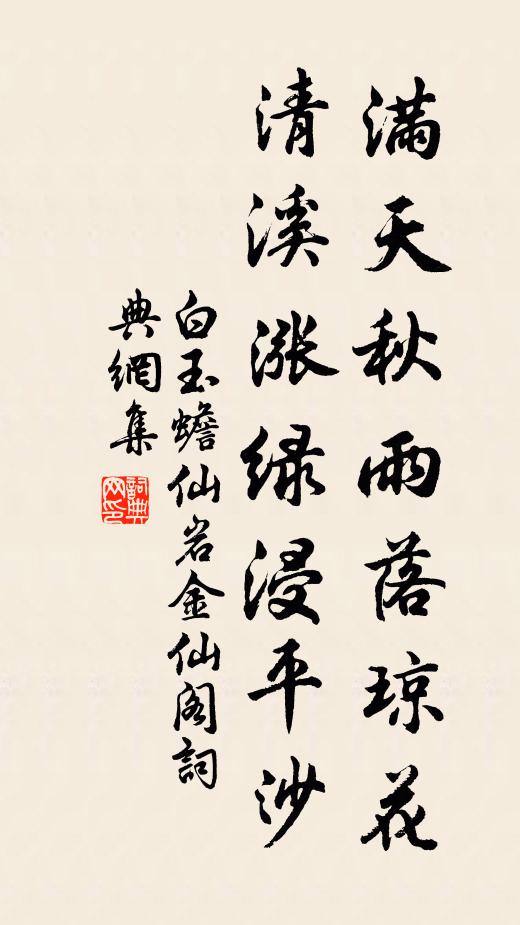 滿天秋雨落琼花
清溪漲绿浸平沙
白玉蟾仙岩金仙阁詞
典網集
詞典
网印